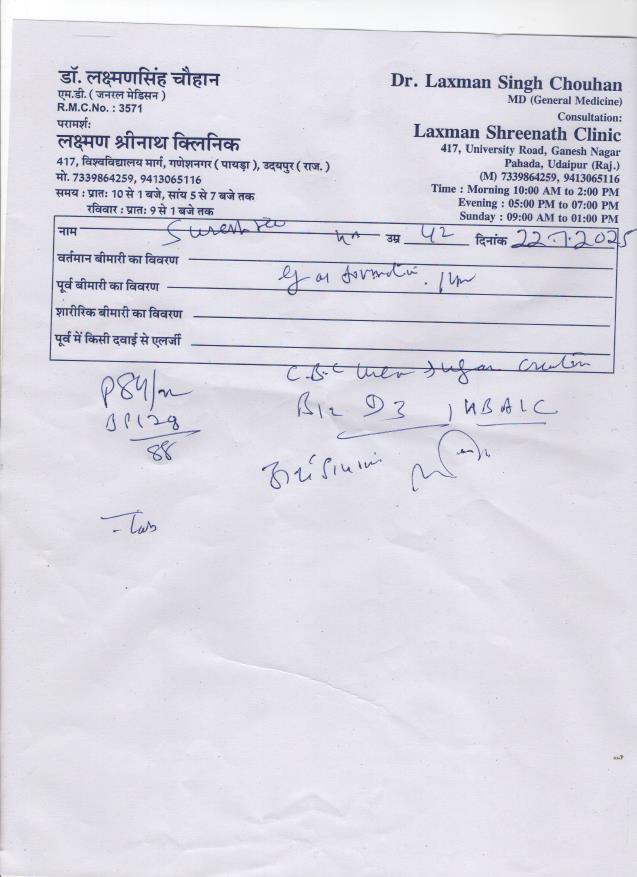 डॉ. लक्ष्मणसिंह चौहान
एम.डी. ( जनरल मेडिसन )
R.M.C.No. : 3571
परामर्श:
लक्ष्मण श्रीनाथ क्लिनिक
417, विश्वविद्यालय मार्ग, गणेशनगर ( पायड़ा ), उदयपुर ( राज. )
मो. 7339864259, 9413065116
समय : प्रातः 10 से 1 बजे, सांय 5 से 7 बजे तक
रविवार : प्रातः 9 से 1 बजे तक
Dr. Laxman Singh Chouhan
MD (General Medicine)
Consultation:
Laxman Shreenath Clinic
417, University Road, Ganesh Nagar
Pahada, Udaipur (Raj.)
(M) 7339864259, 9413065116
Time : Morning 10:00 AM to 2:00 PM
Evening : 05:00 PM to 07:00 PM
Sunday : 09:00 AM to 01:00 PM
नाम उम्र 42 दिनांक 22.7.2025
वर्तमान बीमारी का विवरण
पूर्व बीमारी का विवरण
शारीरिक बीमारी का विवरण
पूर्व में किसी दवाई से एलर्जी
P84/m
BP128
88
C.B.C Urea Sugar
B12 D3 , HBA1C
- Tab